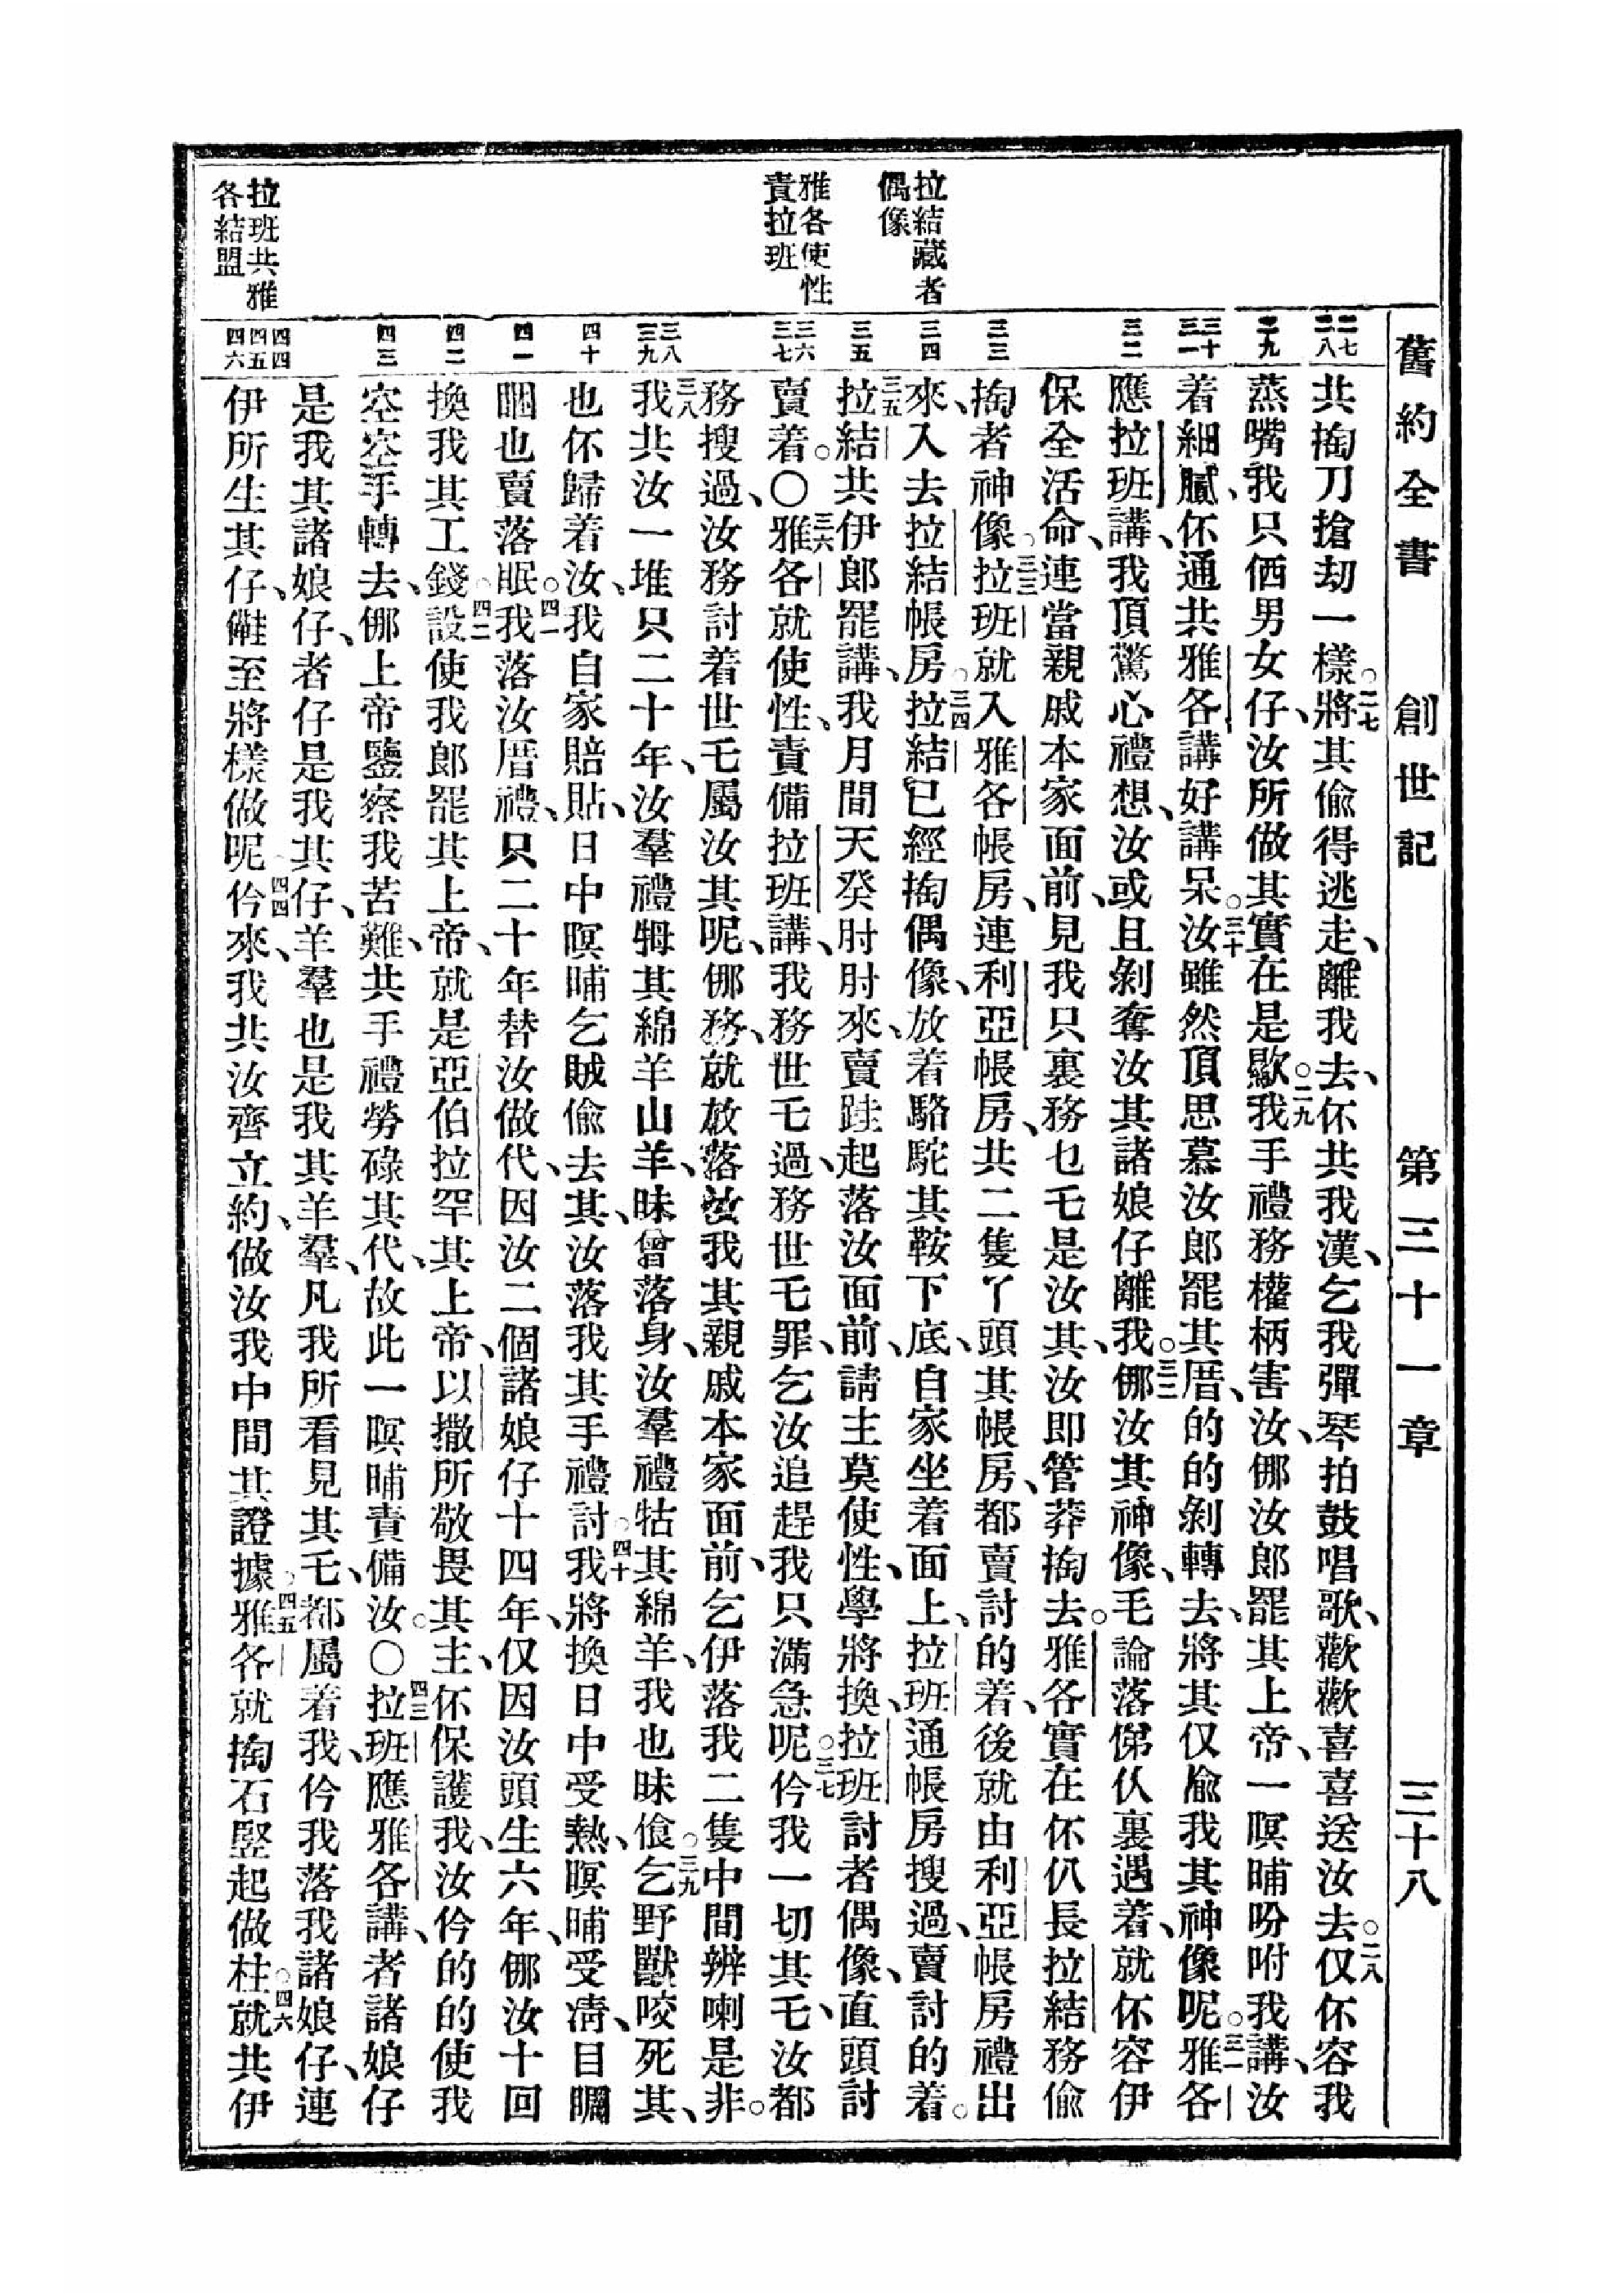 舊約全書 創世記 第三十一章 三十八
拉結藏者
偶像
雅各使性
責拉班
拉班共雅
各結盟
二七 二八
二九
三十 三一
三二
三三
三四
三五
三六 三七
三八 三九
四十
四一
四二
四三
四四 四五 四六
共掏刀搶刼一樣。二七將其偷得逃走、離我去、伓共我漢、乞我彈琴拍鼓唱歌、歡歡喜喜送汝去。二八仅伓容我
蒸嘴我只伵男女仔、汝所做其實在是歞。二九我手禮務權柄害汝、㑚汝郎罷其上帝、一暝晡吩咐我講、汝
着細膩、伓通共雅各講好講呆。三十汝雖然頂思慕汝郎罷其厝、的的剝轉去、將其仅偸我其神像呢。三一雅各
應拉班講、我頂驚心禮想、汝或且剝奪汝其諸娘仔離我。三二㑚汝其神像、毛論落俤仈裏遇着、就伓容伊
保全活命、連當親戚本家面前、見我只裏務乜乇是汝其、汝即管莽掏去。雅各實在伓仈長拉結務偷
掏者神像。三三拉班就入雅各帳房、連利亞帳房、共二隻丫頭其帳房、都賣討的着、後就由利亞帳房禮出
來、入去拉結帳房。三四拉結已經掏偶像、放着駱駝其鞍下底、自家坐着面上、拉班通帳房搜過、賣討的着。
三五拉結共伊郎罷講、我月間天癸肘肘來、賣跬起落汝面前、請主莫使性、學將換、拉班討者偶像、直頭討
賣着。〇三六雅各就使性、責備拉班講、我務世乇過、務世乇罪、乞汝追趕我只滿急呢。三七仱我一切其乇、汝都
務搜過、汝務討着世乇屬汝其呢、㑚務、就放落汝我其親戚本家面前、乞伊落我二隻中間辨喇是非。
三八我共汝一堆只二十年、汝羣禮牳其綿羊山羊、昧曾落身、汝羣禮牯其綿羊、我也昧飡。三九乞野獸咬死其、
也伓歸着汝、我自家賠貼、日中暝晡乞賊偷去其、汝落我其手禮討。四十我將換日中受熱、暝晡受凊、目瞯
睏也賣落眠。四一我落汝厝禮、只二十年替汝做代、因汝二個諸娘仔十四年、仅因汝頭生六年、㑚汝十回
換我其工錢。四二設使我郎罷其上帝、就是亞伯拉罕其上帝、以撒所敬畏其主、伓保護我、汝仱的的使我
空空手轉去、㑚上帝鑒察我苦難、共手禮勞碌其代、故此一暝晡責備汝。〇四三拉班應雅各講、者諸娘仔
是我其諸娘仔、者仔是我其仔、羊羣也是我其羊羣、凡我所看見其乇、都屬着我、仱我落我諸娘仔、連
伊所生其仔、儺至將樣做呢。四四仱來、我共汝齊立約、做汝我中間其證據。四五雅各就掏石竪起做柱。四六就共伊